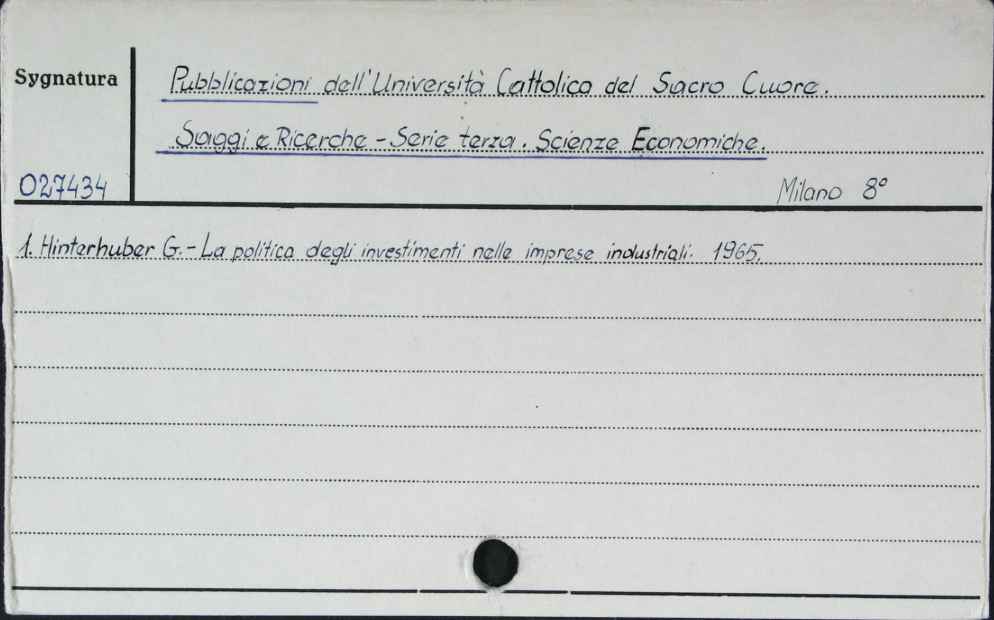 Sygnatura
Pubblicazioni dell'Università Cattolica del Sacro Cuore.
Saggi e Ricerche - Serie terza. Scienze Economiche.
027434
Milano 8°
1. Hinterhuber G. - La politica degli investimenti nelle imprese industriali. 1965.